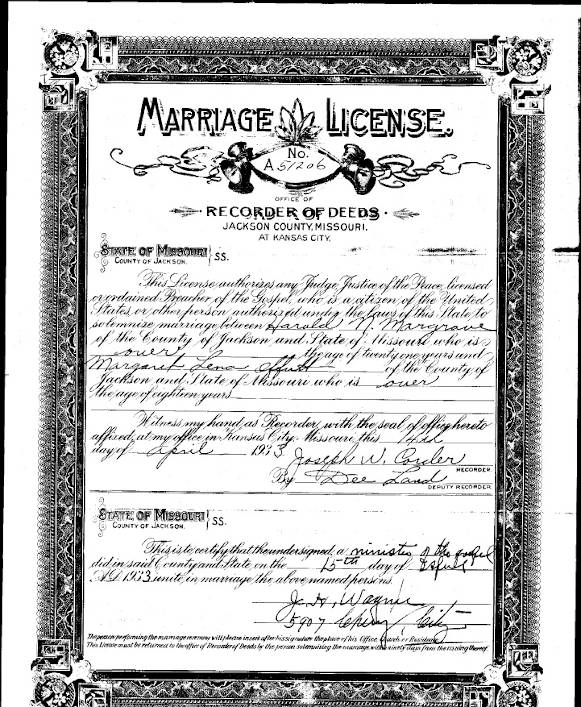 MARRIAGE LICENSE.
No.
A 51206
OFFICE OF
RECORDER OF DEEDS
JACKSON COUNTY, MISSOURI.
AT KANSAS CITY.
STATE OF MISSOURI
COUNTY OF JACKSON. SS.
This License authorizes any Judge, Justice of the Peace, licensed
or ordained Preacher of the Gospel, who is a citizen of the United
States, or other person authorized under the laws of this State to
solemnize marriage between Harold N. Margrave
of the County of Jackson and State of Missouri who is
over the age of twenty one years and
Margaret Lena of the County of
Jackson and State of Missouri who is over
the age of eighteen years
Witness my hand, as Recorder, with the seal of office hereto
affixed, at my office in Kansas City, Missouri, this 14th
day of April 1933
Joseph W. Corder
RECORDER
By Dee Land
DEPUTY RECORDER
STATE OF MISSOURI
COUNTY OF JACKSON. SS.
This is to certify that the undersigned, a minister of the gospel
did in said County and State on the 15th day of April
A.D. 1933 unite in marriage the above named persons.
J. H. Wagner
5907 City
The person performing the marriage ceremony will please insert after his signature the place of his Office, Church or Residence
This License must be returned to the office of Recorder of Deeds by the person solemnizing the marriage within ninety days from the issuing thereof.